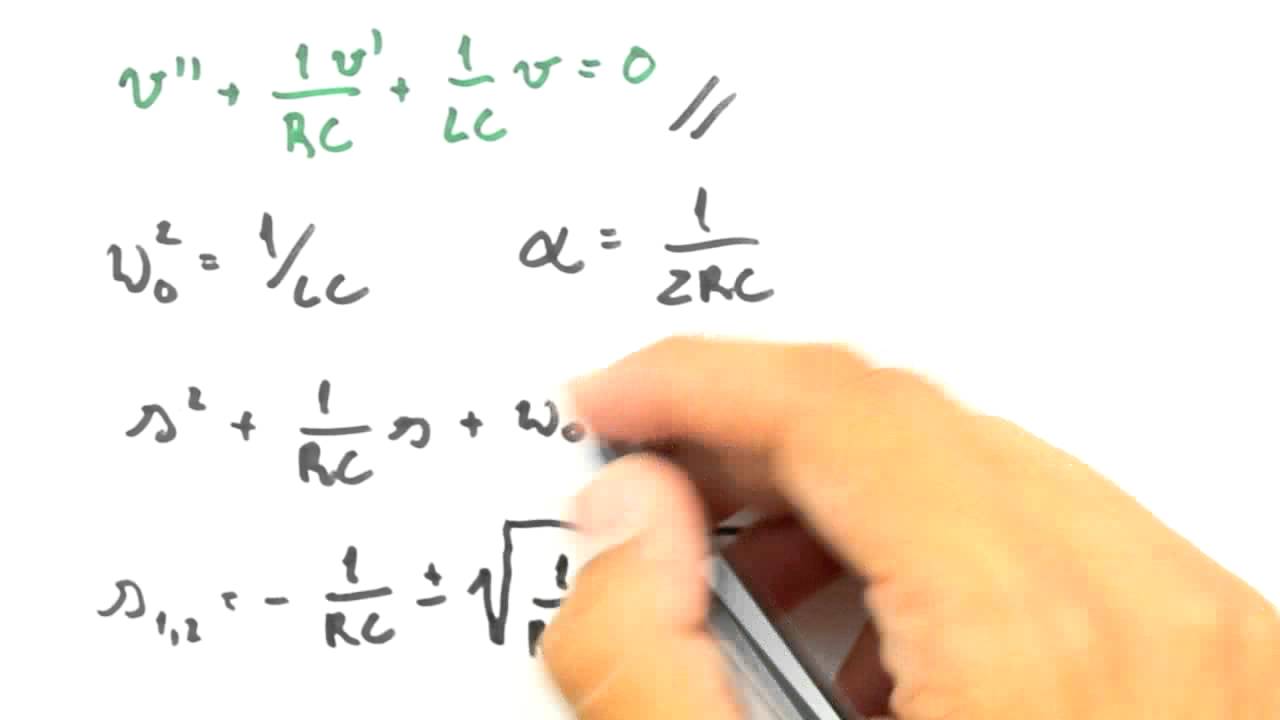 v'' + 1 v' / RC + 1/LC v = 0 //
w₀² = 1/LC α = 1/2RC
s² + 1/RC s + w₀
s₁,₂ = - 1/RC ± √ 1